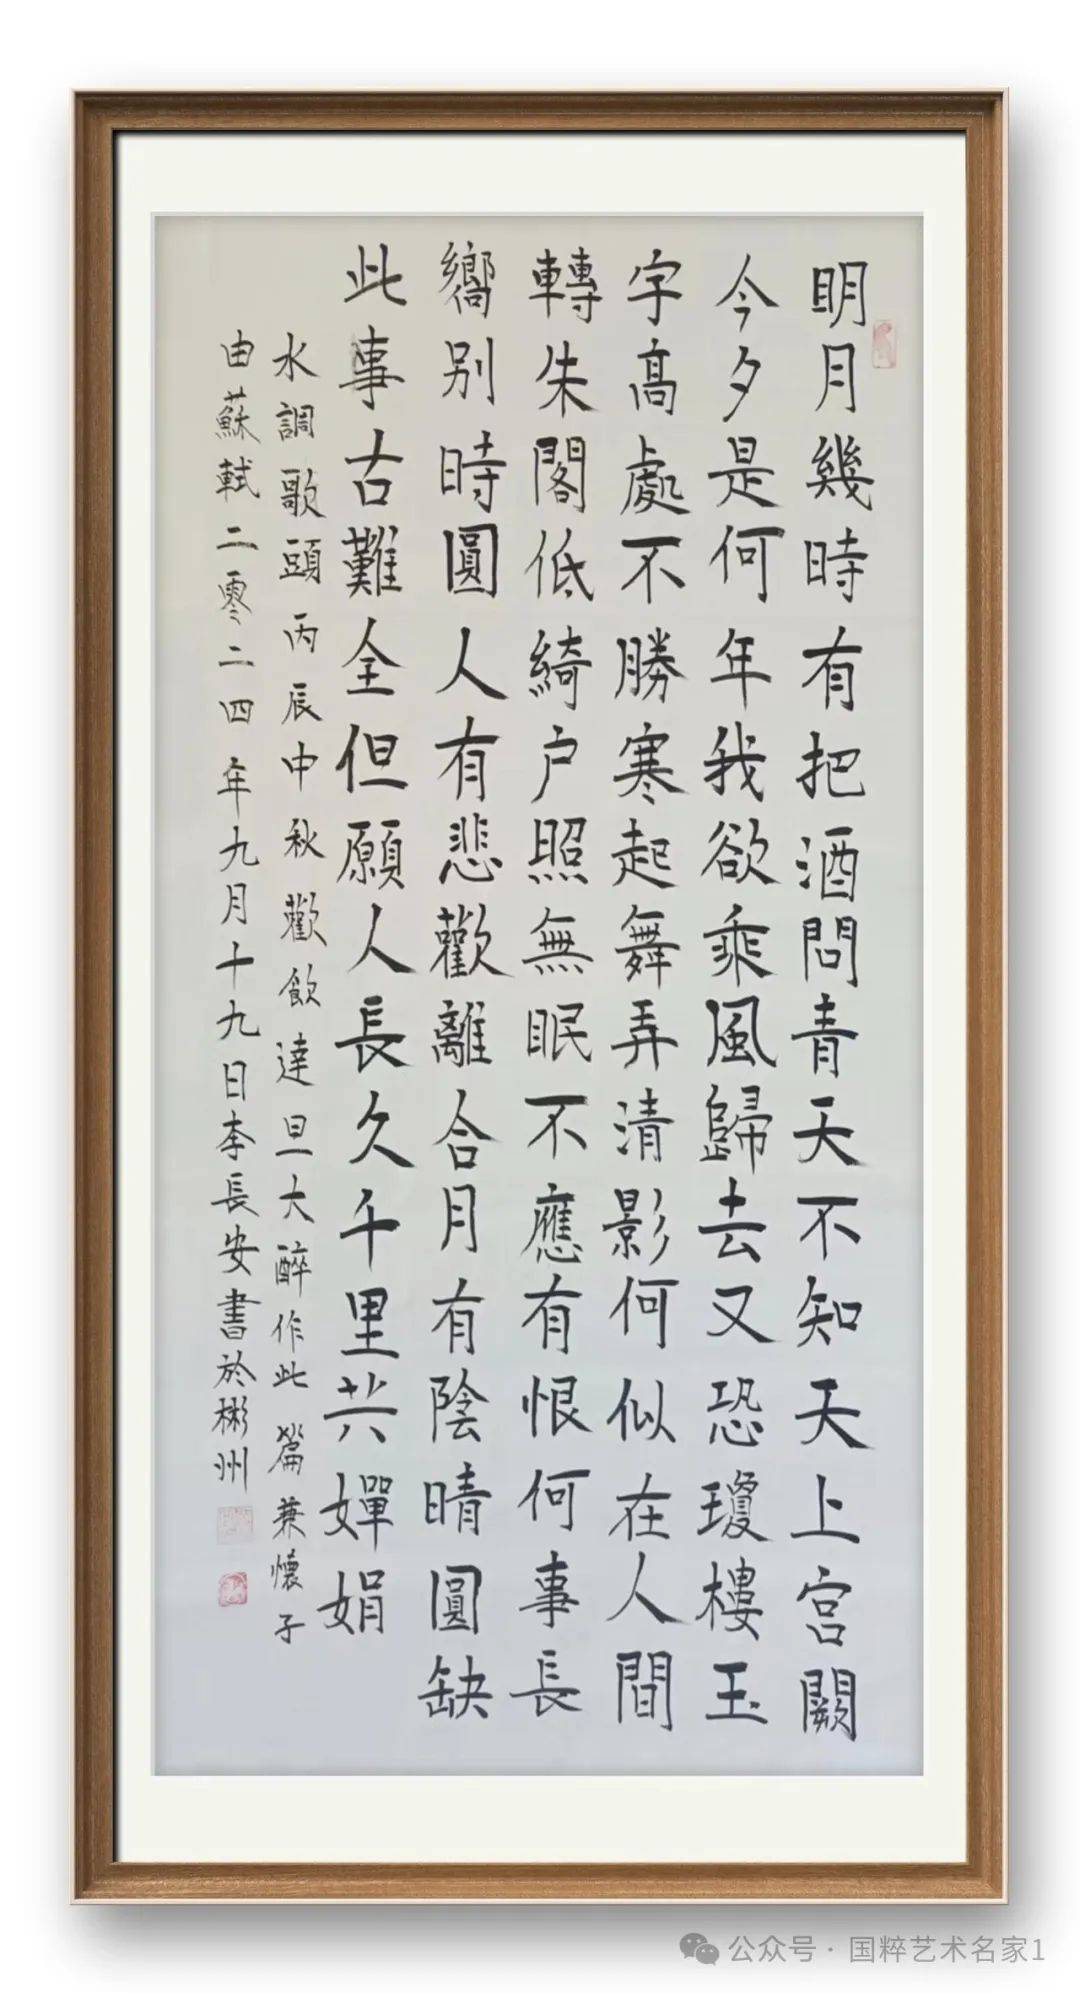 明月幾時有把酒問青天不知天上宮闕
今夕是何年我欲乘風歸去又恐瓊樓玉
字高處不勝寒起舞弄清影何似在人間
轉朱閣低綺户照無眠不應有恨何事長
嚮别時圓人有悲歡離合月有陰晴圓缺
此事古難全但願人長久千里共嬋娟
水調歌頭丙辰中秋歡飲達旦大醉作此篇兼懷子
由蘇軾二零二四年九月十九日李長安書於彬州
公众号·国粹艺术名家1